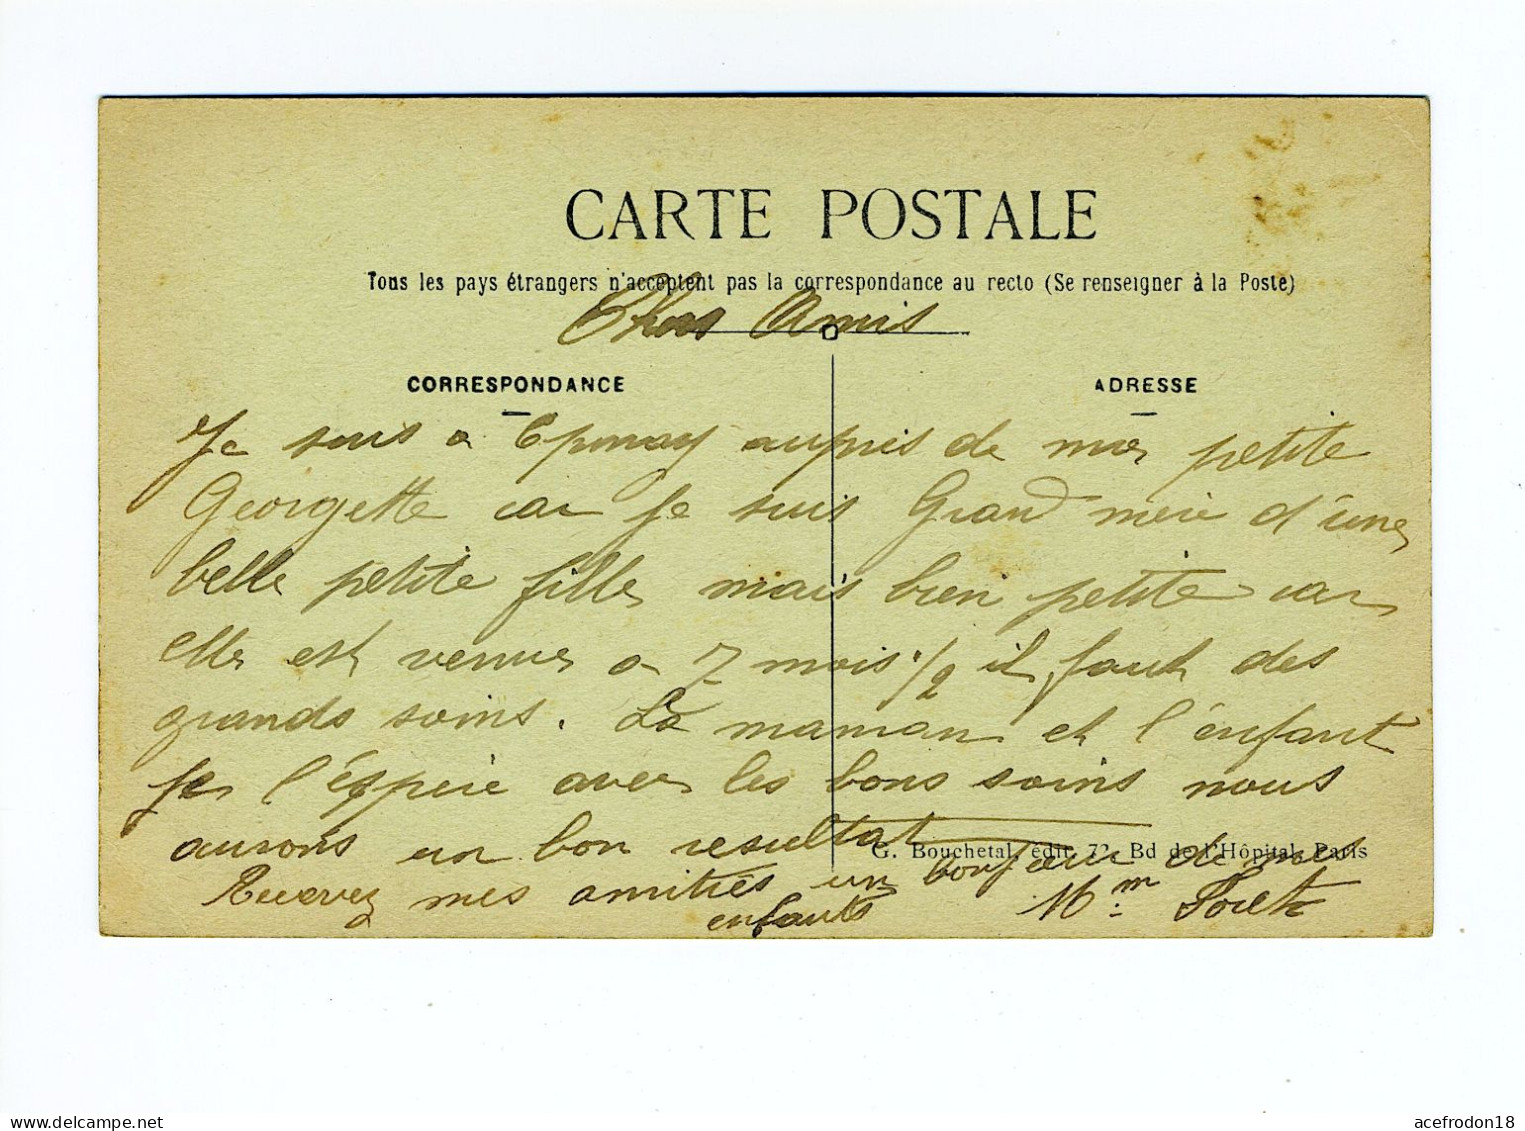 CARTE POSTALE
Tous les pays étrangers n'acceptent pas la correspondance au recto (Se renseigner à la Poste)
Chers Amis
CORRESPONDANCE
ADRESSE
Je suis a Eponay auprès de ma petite
Georgette car je suis Grand mère d'une
belle petite fille mais bien petite car
elle est venue a 7 mois 1/2 il faut des
grands soins. La maman et l'enfant
je l'éspère avec les bons soins nous
aurons un bon resultat
G. Bouchetal, édit. 72, Bd de l'Hôpital, Paris
Recevez mes amitiés un bonjour de mes
enfants Mme